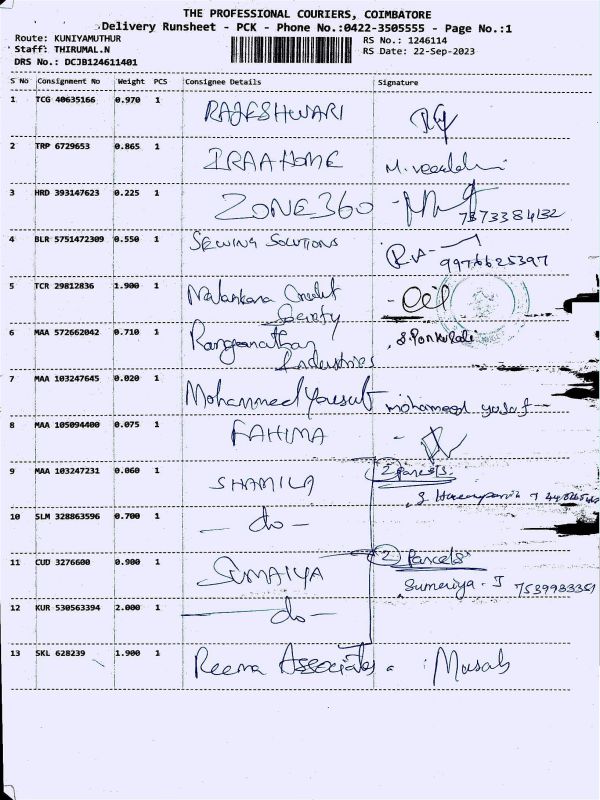 THE PROFESSIONAL COURIERS, COIMBATORE
Delivery Runsheet - PCK - Phone No.:0422-3505555 - Page No.:1
Route: KUNIYAMUTHUR RS No.: 1246114
Staff: THIRUMAL.N RS Date: 22-Sep-2023
DRS No.: DCJB124611401
S No Consignment No Weight PCS Consignee Details Signature
1 TCG 40635166 0.970 1 RAJESHWARI
2 TRP 6729653 0.865 1 IRAA HOME
3 HRD 393147623 0.225 1 ZONE360 7373384132
4 BLR 5751472309 0.550 1 SEWING SOLUTIONS 9976625397
5 TCR 29812836 1.900 1 Malankara Credit
Society
6 MAA 572662042 0.710 1 Ranganathan
Industries
7 MAA 103247645 0.020 1 Mohammed Yousuf mohameed yusaf
8 MAA 105094400 0.075 1 FAHIMA
9 MAA 103247231 0.060 1 SHAMILA 2 parcels.
10 SLM 328863596 0.700 1 - do -
11 CUD 3276600 0.900 1 SUMAIYA 2 Parcels
Sumeriya. J 7539933351
12 KUR 530563394 2.000 1 - do -
13 SKL 628239 1.900 1 Reena Associates